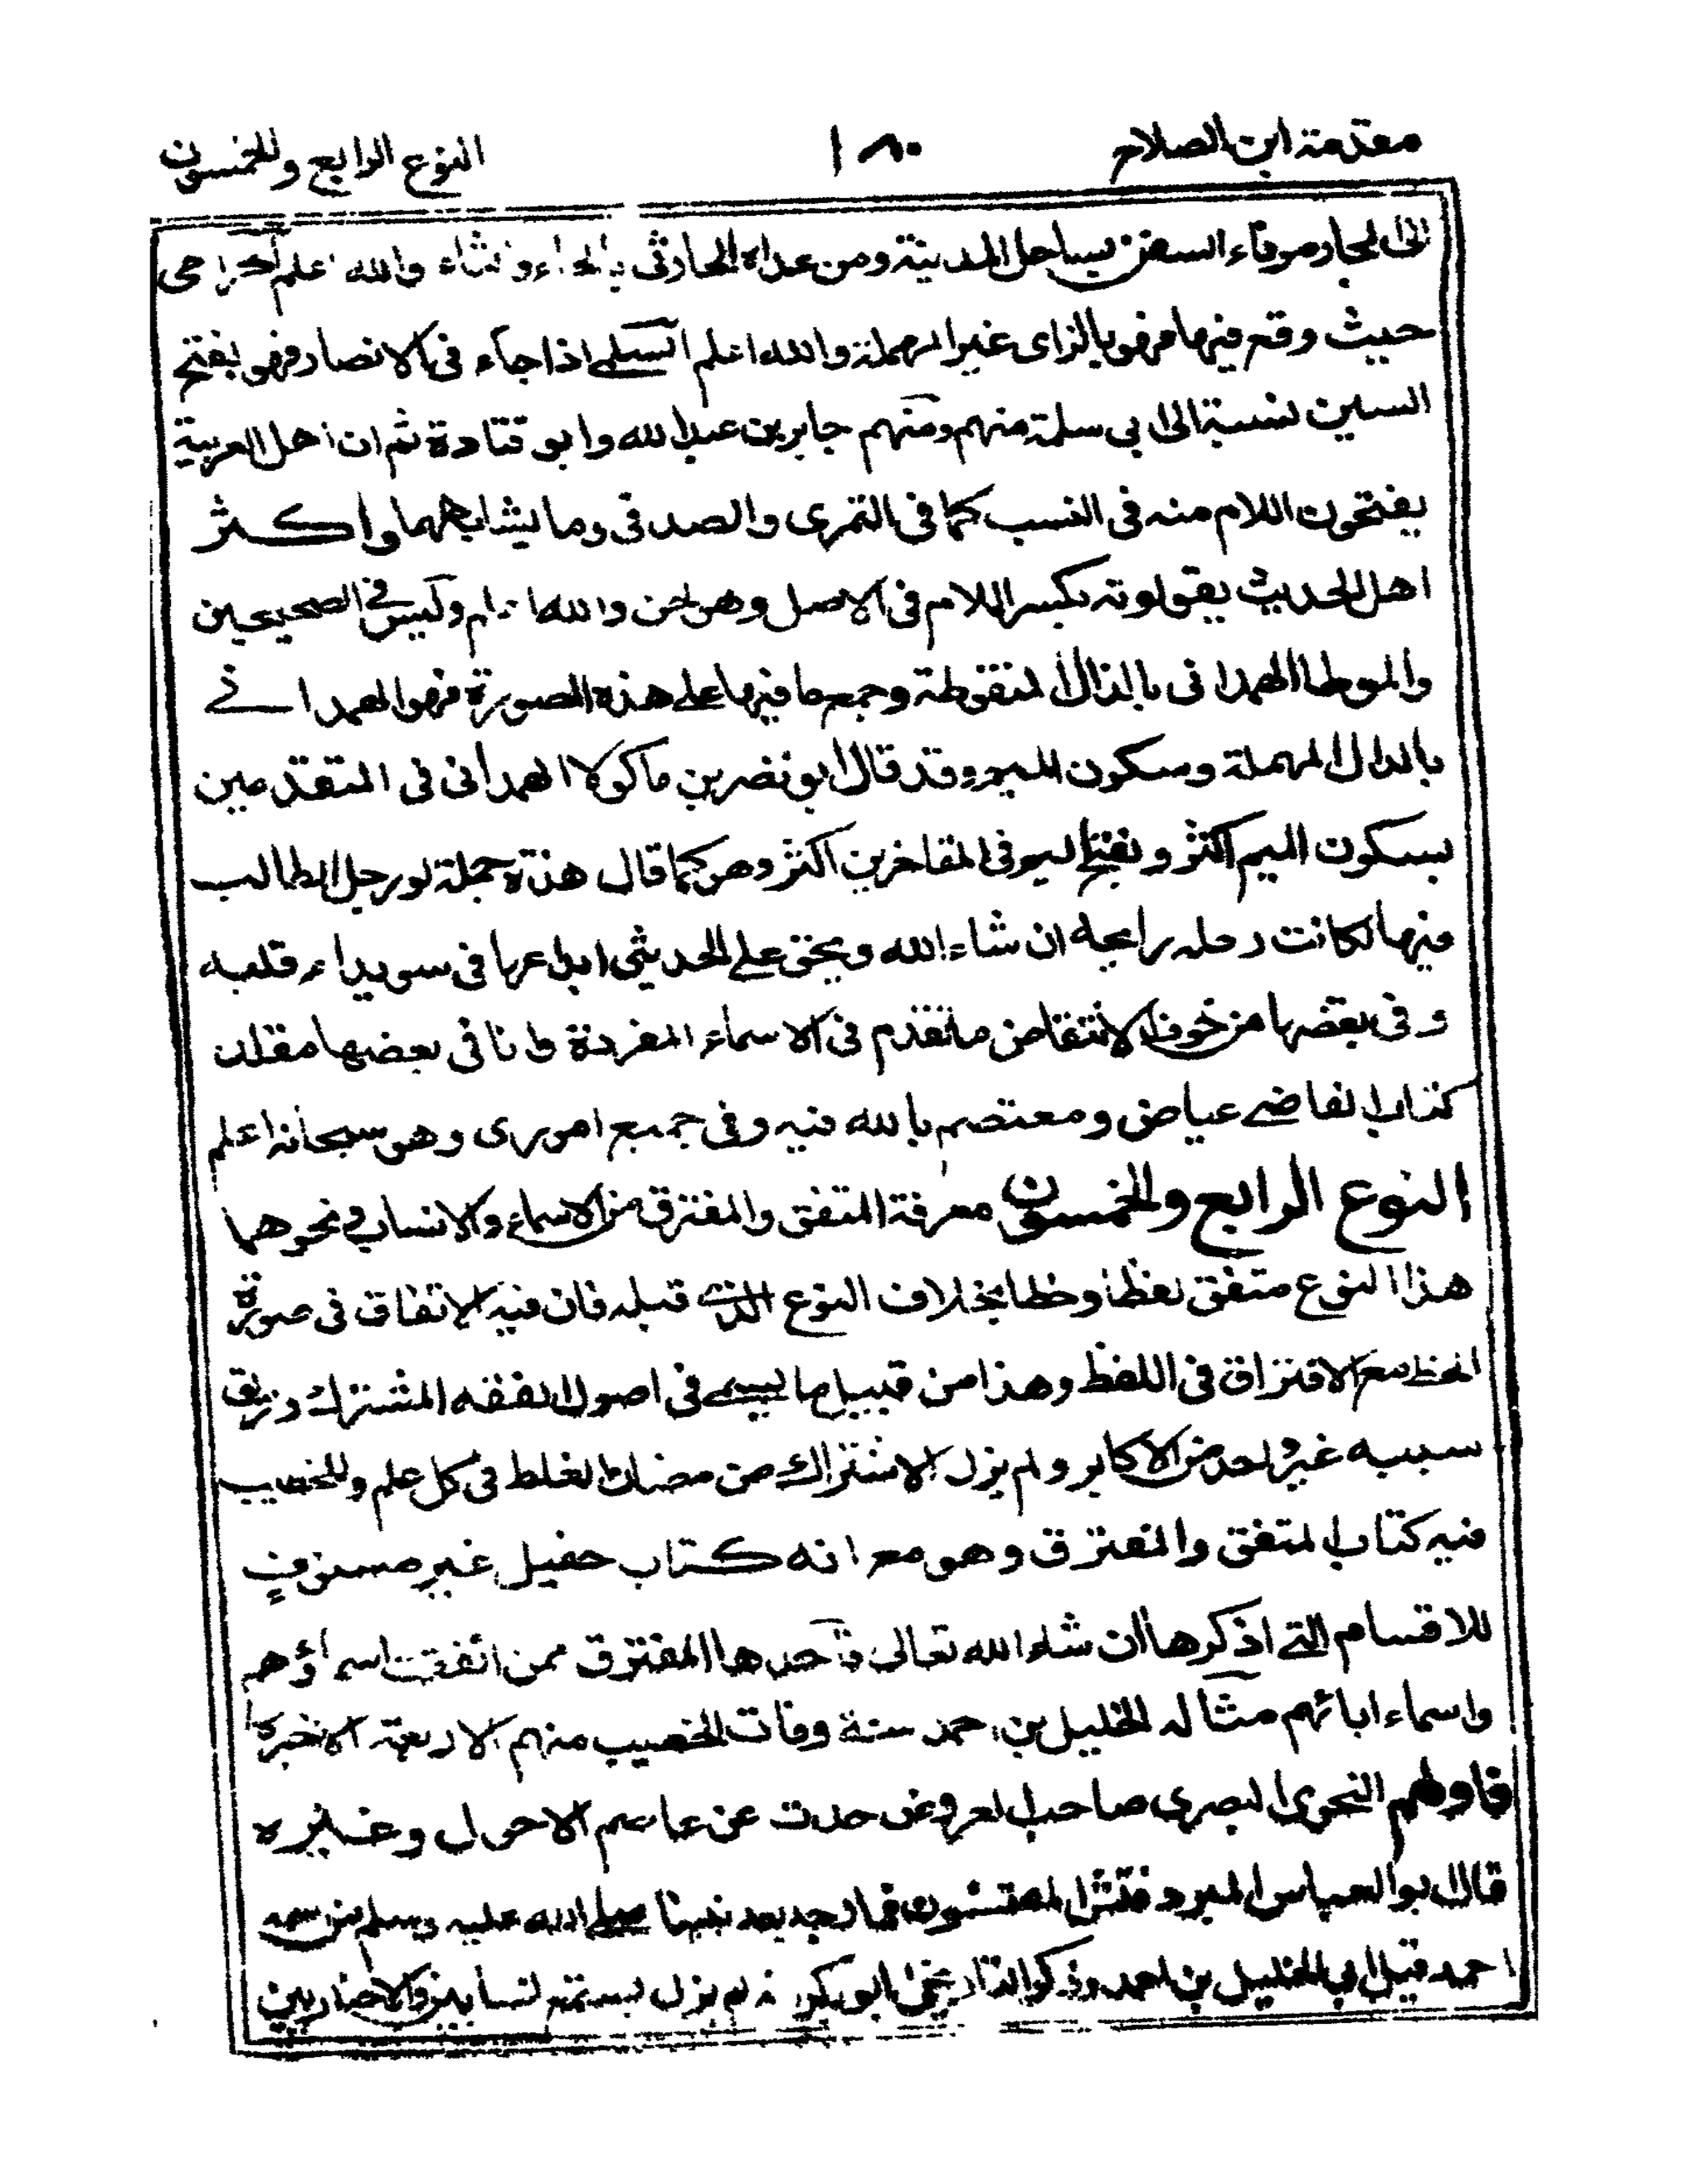 مقدمة ابن الصلاح ١٨٠ النوع الرابع والخمسون
الى الجار مرفاء السفن بساحل المدينة ومن عداه الحارثى بالحاء والثاء والله اعلم الحزامى
حيث وقع فيها فهو بالزاى غير المهملة والله اعلم السلمى اذا جاء فى الانصار فهو بفتح
السين نسبة الى بنى سلمة منهم ومنهم جابر بن عبد الله وابو قتادة ثم ان اهل العربية
يفتحون اللام منه فى النسب كما فى النمرى والصدفى وما يشابههما واكثر
اهل الحديث يقولونه بكسر اللام فى الاصل وهو لحن والله اعلم وليس فى الصحيحين
والموطا الهمذانى بالذال المنقوطة وجميع ما فيها على هذه الصورة فهو الهمدانى
بالدال المهملة وسكون الميم وقد قال ابو نصر بن ماكولا الهمدانى فى المتقدمين
بسكون الميم اكثر وبفتح الميم فى المتاخرين اكثر وهو كما قال هذه جملة لو رحل الطالب
فيها لكانت رحلة رابحة ان شاء الله ويحق على الحديثى ايداعها فى سويداء قلبه
وفى بعضها من خوف الانتقاض ما تقدم فى الاسماء المفردة وانا فى بعضها مقلد
كتاب القاضى عياض ومعتصم بالله فيه وفى جميع امورى وهو سبحانه اعلم
النوع الرابع والخمسون معرفة المتفق والمفترق من الاسماء والانساب ونحوهما
هذا النوع متفق لفظا وخطا بخلاف النوع الذى قبله فان فيه الاتفاق فى صورة
الخط مع الافتراق فى اللفظ وهذا من قبيل ما يسمى فى اصول الفقه المشترك وزلق
بسببه غير واحد من الاكابر ولم يزل الاشتراك من مضان الغلط فى كل علم وللخطيب
فيه كتاب المتفق والمفترق وهو مع انه كتاب حفيل غير مستوف
للاقسام التى اذكرها ان شاء الله تعالى فاحدها المفترق ممن اتفقت اسماؤهم
واسماء ابائهم مثاله الخليل بن احمد ستة وفات الخطيب منهم الاربعة الاخيرة
فاولهم النحوى البصرى صاحب العروض حدث عن عاصم الاحول وغيره
قال ابو العباس المبرد فتش المفتشون فما وجد بعد نبينا صلى الله عليه وسلم من اسمه
احمد قبل ابى الخليل بن احمد وذكر التاريخى ابو بكر انه لم يزل يسمع النسابين والاخباريين